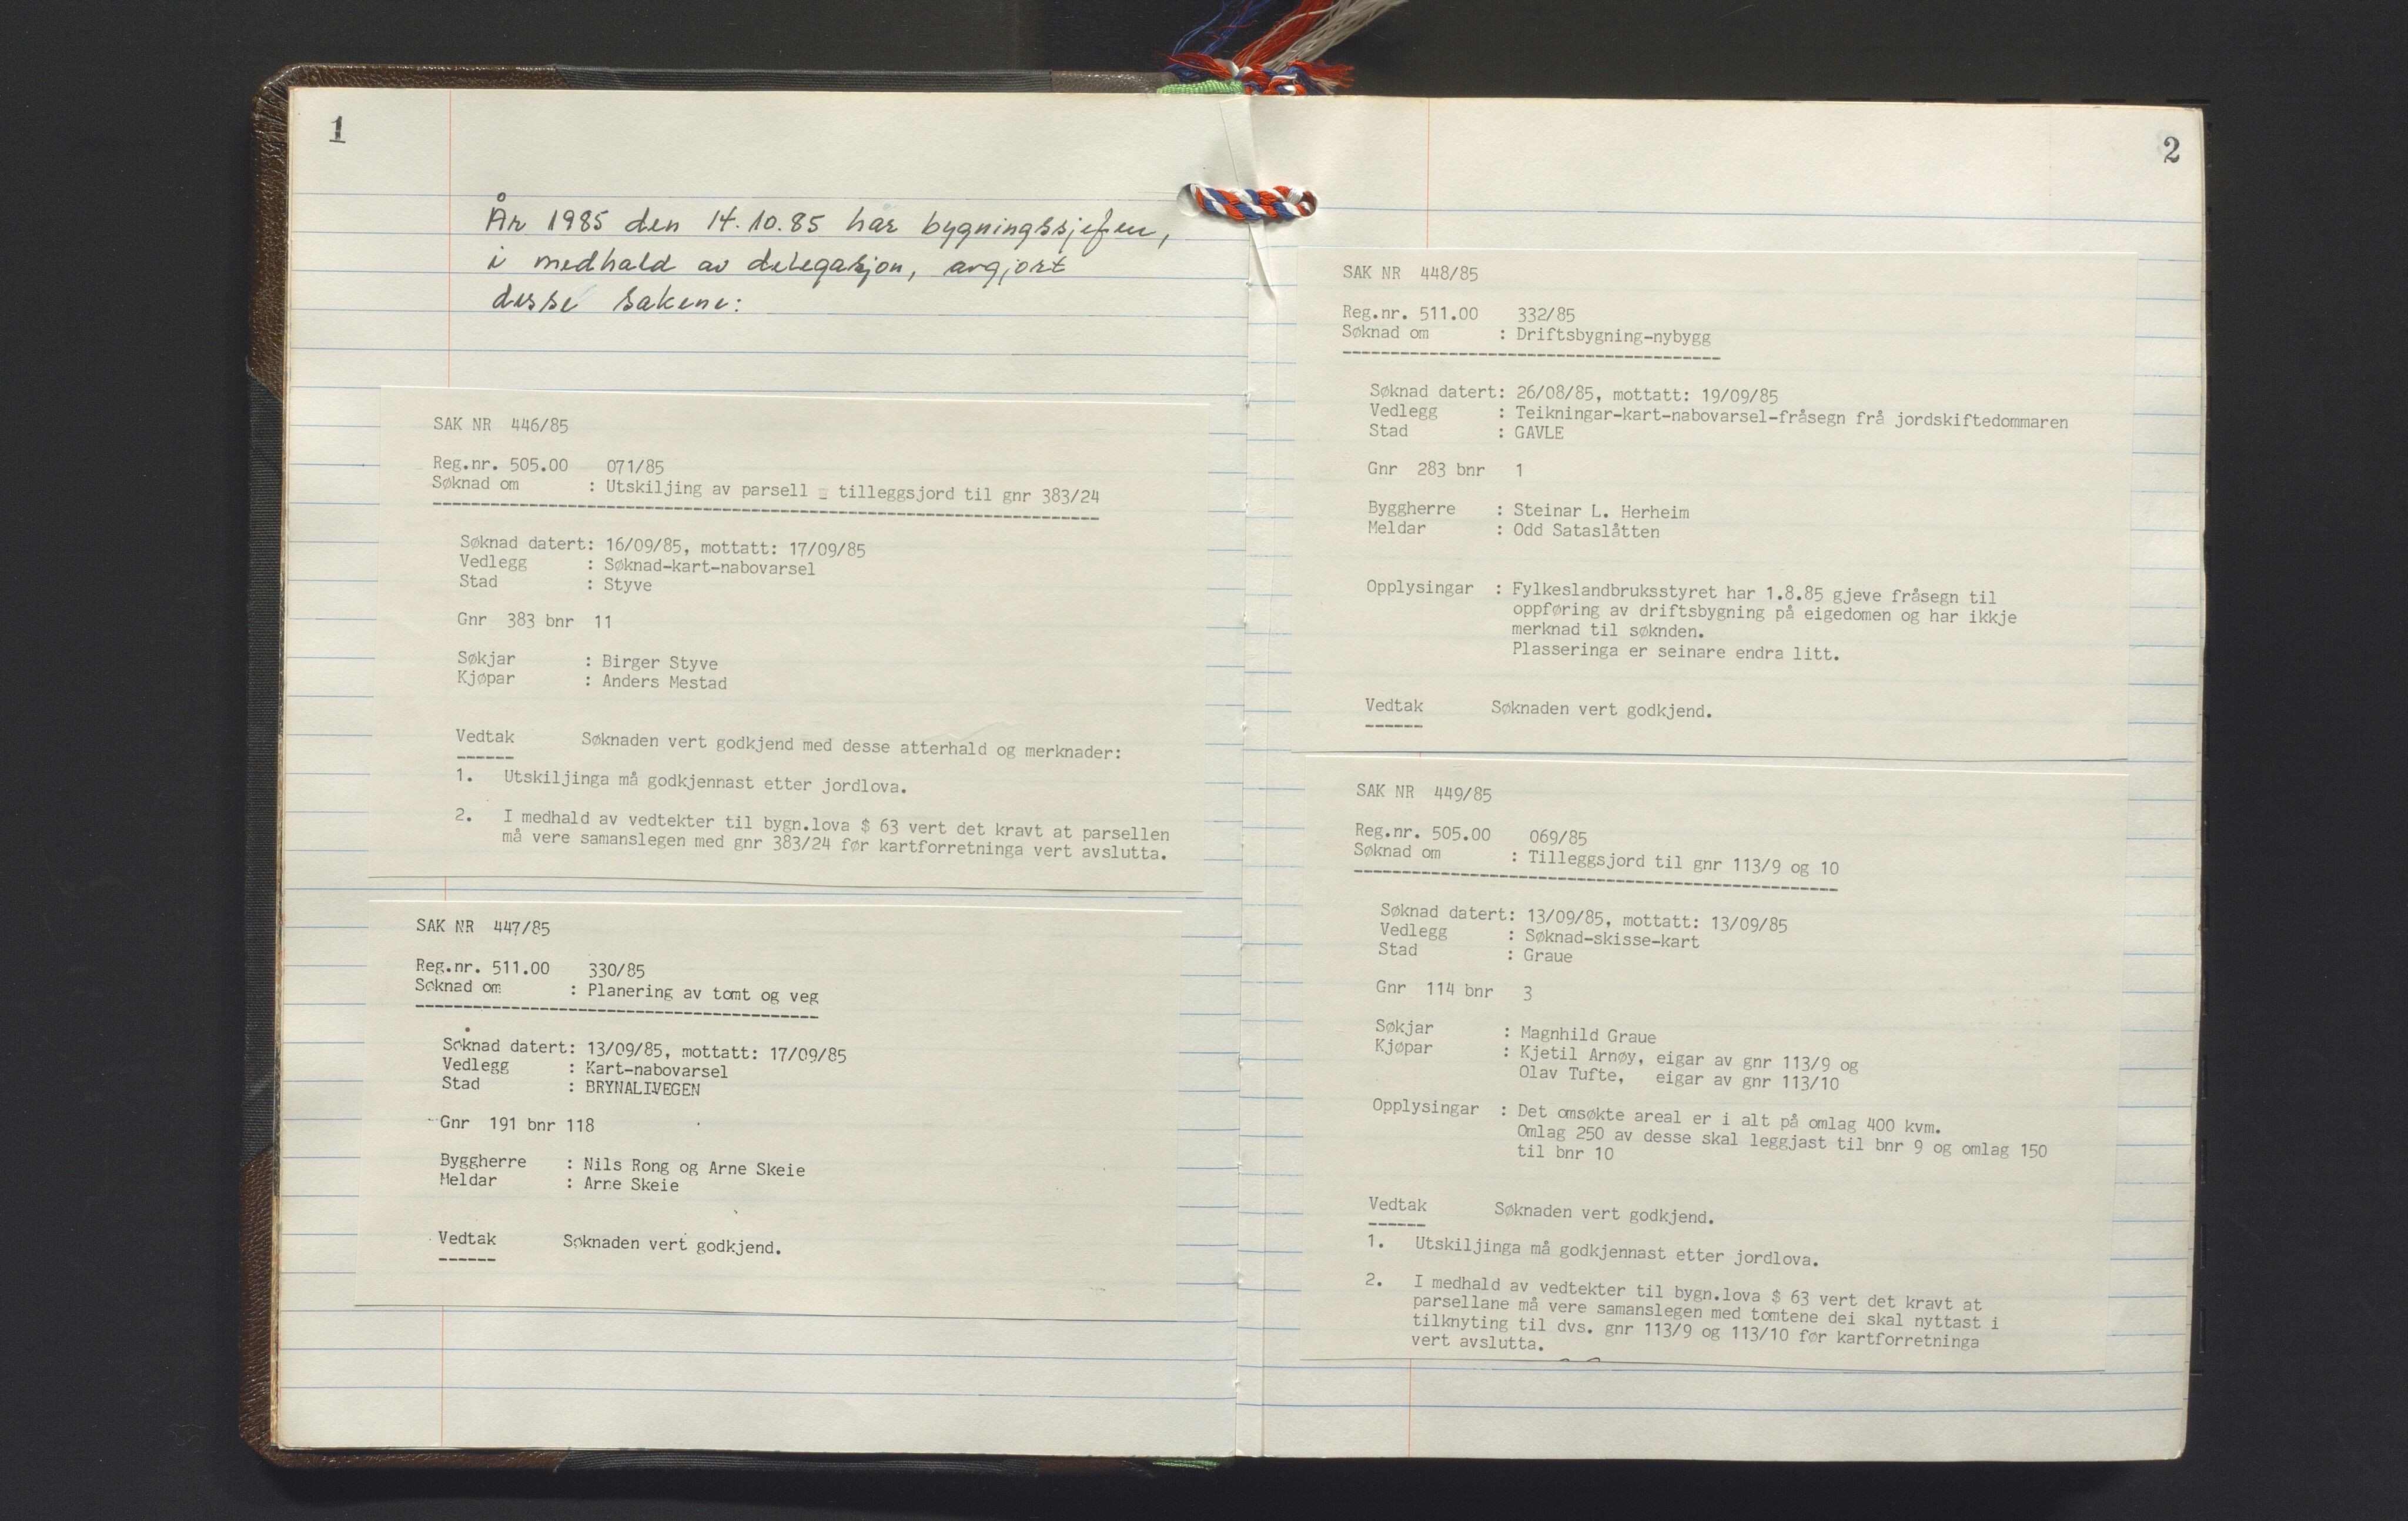 1
År 1985 den 14.10.85 har bygningssjefen,
i medhald av delegasjon, avgjort
desse sakene:
SAK NR 446/85
Reg.nr. 505.00 071/85
Søknad om : Utskiljing av parsell - tilleggsjord til gnr 383/24
Søknad datert: 16/09/85, mottatt: 17/09/85
Vedlegg : Søknad-kart-nabovarsel
Stad : Styve
Gnr 383 bnr 11
Søkjar : Birger Styve
Kjøpar : Anders Mestad
Vedtak Søknaden vert godkjend med desse atterhald og merknader:
1. Utskiljinga må godkjennast etter jordlova.
2. I medhald av vedtekter til bygn.lova $ 63 vert det kravt at parsellen
må vere samanslegen med gnr 383/24 før kartforretninga vert avslutta.
SAK NR 447/85
Reg.nr. 511.00 330/85
Søknad om : Planering av tomt og veg
Søknad datert: 13/09/85, mottatt: 17/09/85
Vedlegg : Kart-nabovarsel
Stad : BRYNALIVEGEN
Gnr 191 bnr 118
Byggherre : Nils Rong og Arne Skeie
Meldar : Arne Skeie
Vedtak Søknaden vert godkjend.
2
SAK NR 448/85
Reg.nr. 511.00 332/85
Søknad om : Driftsbygning-nybygg
Søknad datert: 26/08/85, mottatt: 19/09/85
Vedlegg : Teikningar-kart-nabovarsel-fråsegn frå jordskiftedommaren
Stad : GAVLE
Gnr 283 bnr 1
Byggherre : Steinar L. Herheim
Meldar : Odd Sataslåtten
Opplysingar : Fylkeslandbruksstyret har 1.8.85 gjeve fråsegn til
oppføring av driftsbygning på eigedomen og har ikkje
merknad til søknden.
Plasseringa er seinare endra litt.
Vedtak Søknaden vert godkjend.
SAK NR 449/85
Reg.nr. 505.00 069/85
Søknad om : Tilleggsjord til gnr 113/9 og 10
Søknad datert: 13/09/85, mottatt: 13/09/85
Vedlegg : Søknad-skisse-kart
Stad : Graue
Gnr 114 bnr 3
Søkjar : Magnhild Graue
Kjøpar : Kjetil Arnøy, eigar av gnr 113/9 og
Olav Tufte, eigar av gnr 113/10
Opplysingar : Det omsøkte areal er i alt på omlag 400 kvm.
Omlag 250 av desse skal leggjast til bnr 9 og omlag 150
til bnr 10
Vedtak Søknaden vert godkjend.
1. Utskiljinga må godkjennast etter jordlova.
2. I medhald av vedtekter til bygn.lova $ 63 vert det kravt at
parsellane må vere samanslegen med tomtene dei skal nyttast i
tilknyting til dvs. gnr 113/9 og 113/10 før kartforretninga
vert avslutta.